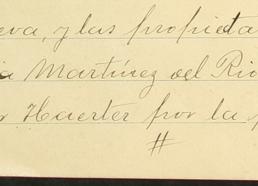 eva, y las propieta
ia Martínez del Rio
r Haerter por la
#